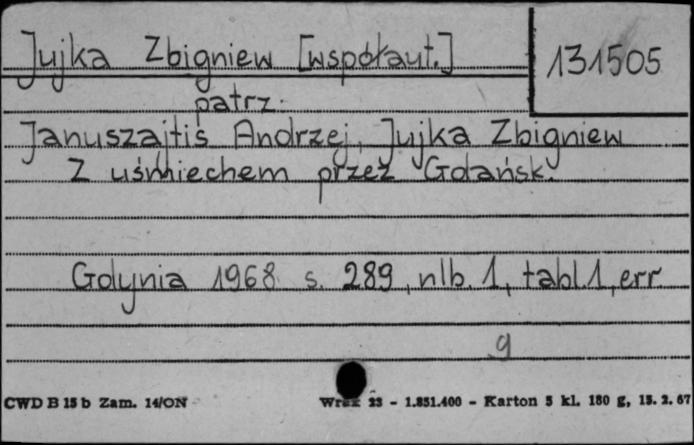 Jujka Zbigniew [współaut.]
131505
patrz:
Januszajtis Andrzej, Jujka Zbigniew
Z uśmiechem przez Gdańsk.
Gdynia 1968 s. 289, nlb. 1, tabl. 1, err
9
CWD B 15 b Zam. 14/ON
23 - 1.851.400 - Karton 5 kl. 180 g, 15. 2. 67